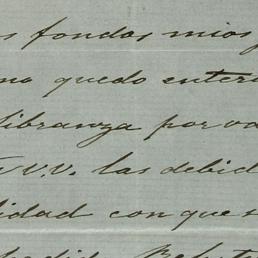 s fondos mios
no quedo enter
libranza por va
V.V. las debid
lidad con que s